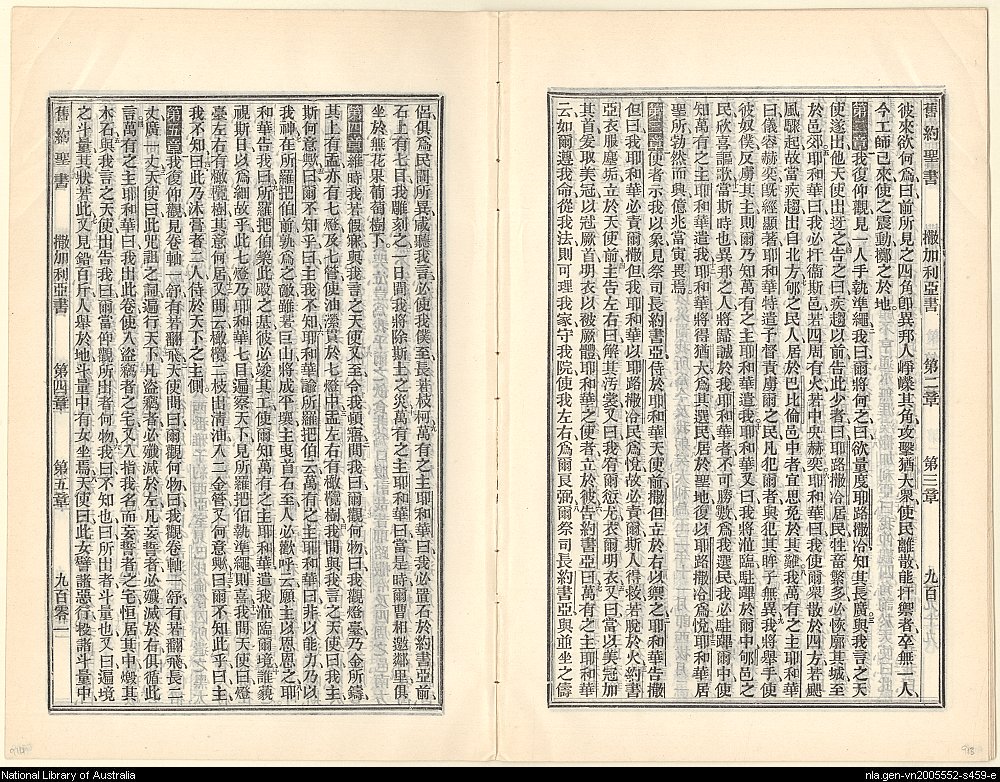 舊約聖書 撒加利亞書 第二章 第三章 九百
彼來欲何爲曰前所見之四角卽異邦人崢嶸其角攻擊猶大衆使民離散能扞禦者卒無一人
今工師已來使之震動擲之於地
第二章我復仰觀見一人手執準繩我曰爾將何之曰欲量度耶路撒冷知其長廣與我言之天
使遂出他天使出迓之告之曰疾趨以前告此少者曰耶路撒冷居民牲畜繁多必恢廓其城至
於邑郊耶和華曰我必扞衞斯邑若四周有火若中央赫奕耶和華曰我使爾衆散於四方若颺
風驟起故當疾趨出自北方郇之民人居於巴比倫邑中者宜思免於其難我萬有之主耶和華
曰儀容赫奕旣經顯著耶和華特遣予督責虜爾之民凡犯爾者與犯其眸子無異我將舉手使
彼奴僕反虜其主則爾乃知萬有之主耶和華遣我耶和華又曰我將涖臨駐蹕於爾中郇邑之
民欣喜謳歌當斯時也異邦之人將歸誠於我耶和華者不可勝數爲我選民我必駐蹕爾中使
知萬有之主耶和華遣我耶和華將得猶大爲其選民居於聖地復以耶路撒冷爲悅耶和華居
聖所勃然而興億兆當寅畏焉
第三章使者示我以象見祭司長約書亞侍於耶和華天使前撒但立於右以禦之耶和華告撒
但曰我耶和華必責爾撒但我耶和華以耶路撒冷民爲悅故必責爾斯人得救若脫於火約書
亞衣服塵垢立於天使前主告左右曰解其污裳又曰我宥爾愆尤衣爾明衣又曰當以美冠加
其首爰取美冠以冠厥首明衣以被厥體耶和華之使者立於彼告約書亞曰萬有之主耶和華
云如爾遵我命從我法則可理我家守我院使我左右爲爾良弼爾祭司長約書亞與竝坐之儔
侶俱爲民間所異咸聽我言必使我僕至長若枝柯萬有之主耶和華曰我必置石於約書亞前
石上有七目我雕刻之一日間我將除斯土之災萬有之主耶和華曰當是時爾曹相邀鄰里俱
坐於無花果葡萄樹下
第四章維時我若假寐與我言之天使又至令我頓寤問我曰爾觀何物曰我觀燈臺乃金所鑄
其上有盂亦有七燈及七管使油瀠貫於七燈中盂左右有橄欖樹我問與我言之天使曰我主
斯何意歟曰爾不知乎曰主我不知耶和華諭所羅把伯云萬有之主耶和華曰非以能力乃以
我神在所羅把伯前孰爲之敵雖若巨山將成平壤主曳首石至人必歡呼云願主以恩恩之耶
和華告我曰所羅把伯築此殿之基彼必竣其工使爾知萬有之主耶和華遣我涖臨爾境誰藐
視斯日以爲細故乎此七燈乃耶和華七目遍察天下見所羅把伯執準繩則喜我問天使曰燈
臺左右有橄欖樹其意何居又問云橄欖二枝出淸油入二金管又何意歟曰爾不知此乎曰主
我不知曰此乃沐膏者二人侍於天下之主側
第五章我復仰觀見卷軸一舒有若翻飛天使問曰爾觀何物曰我觀卷軸一舒有若翻飛長二
丈廣一丈天使曰此咒詛之詞遍行天下凡盜竊者必殲滅於左凡妄誓者必殲滅於右俱循此
言萬有之主耶和華曰我出此卷使入盜竊者之宅又入指我名而妄誓者之宅恒居其中燬其
木石與我言之天使出告我曰爾當仰觀所出者何物我曰不知也曰所出者斗量也又曰遍境
之斗量其狀若此又見鉛百斤人舉於地斗量中有女坐焉天使曰此女譬諸惡行投諸斗量中
舊約聖書 撒加利亞書 第四章 第五章 九百零一
National Library of Australia
nla.gen-vn2005552-s459-e